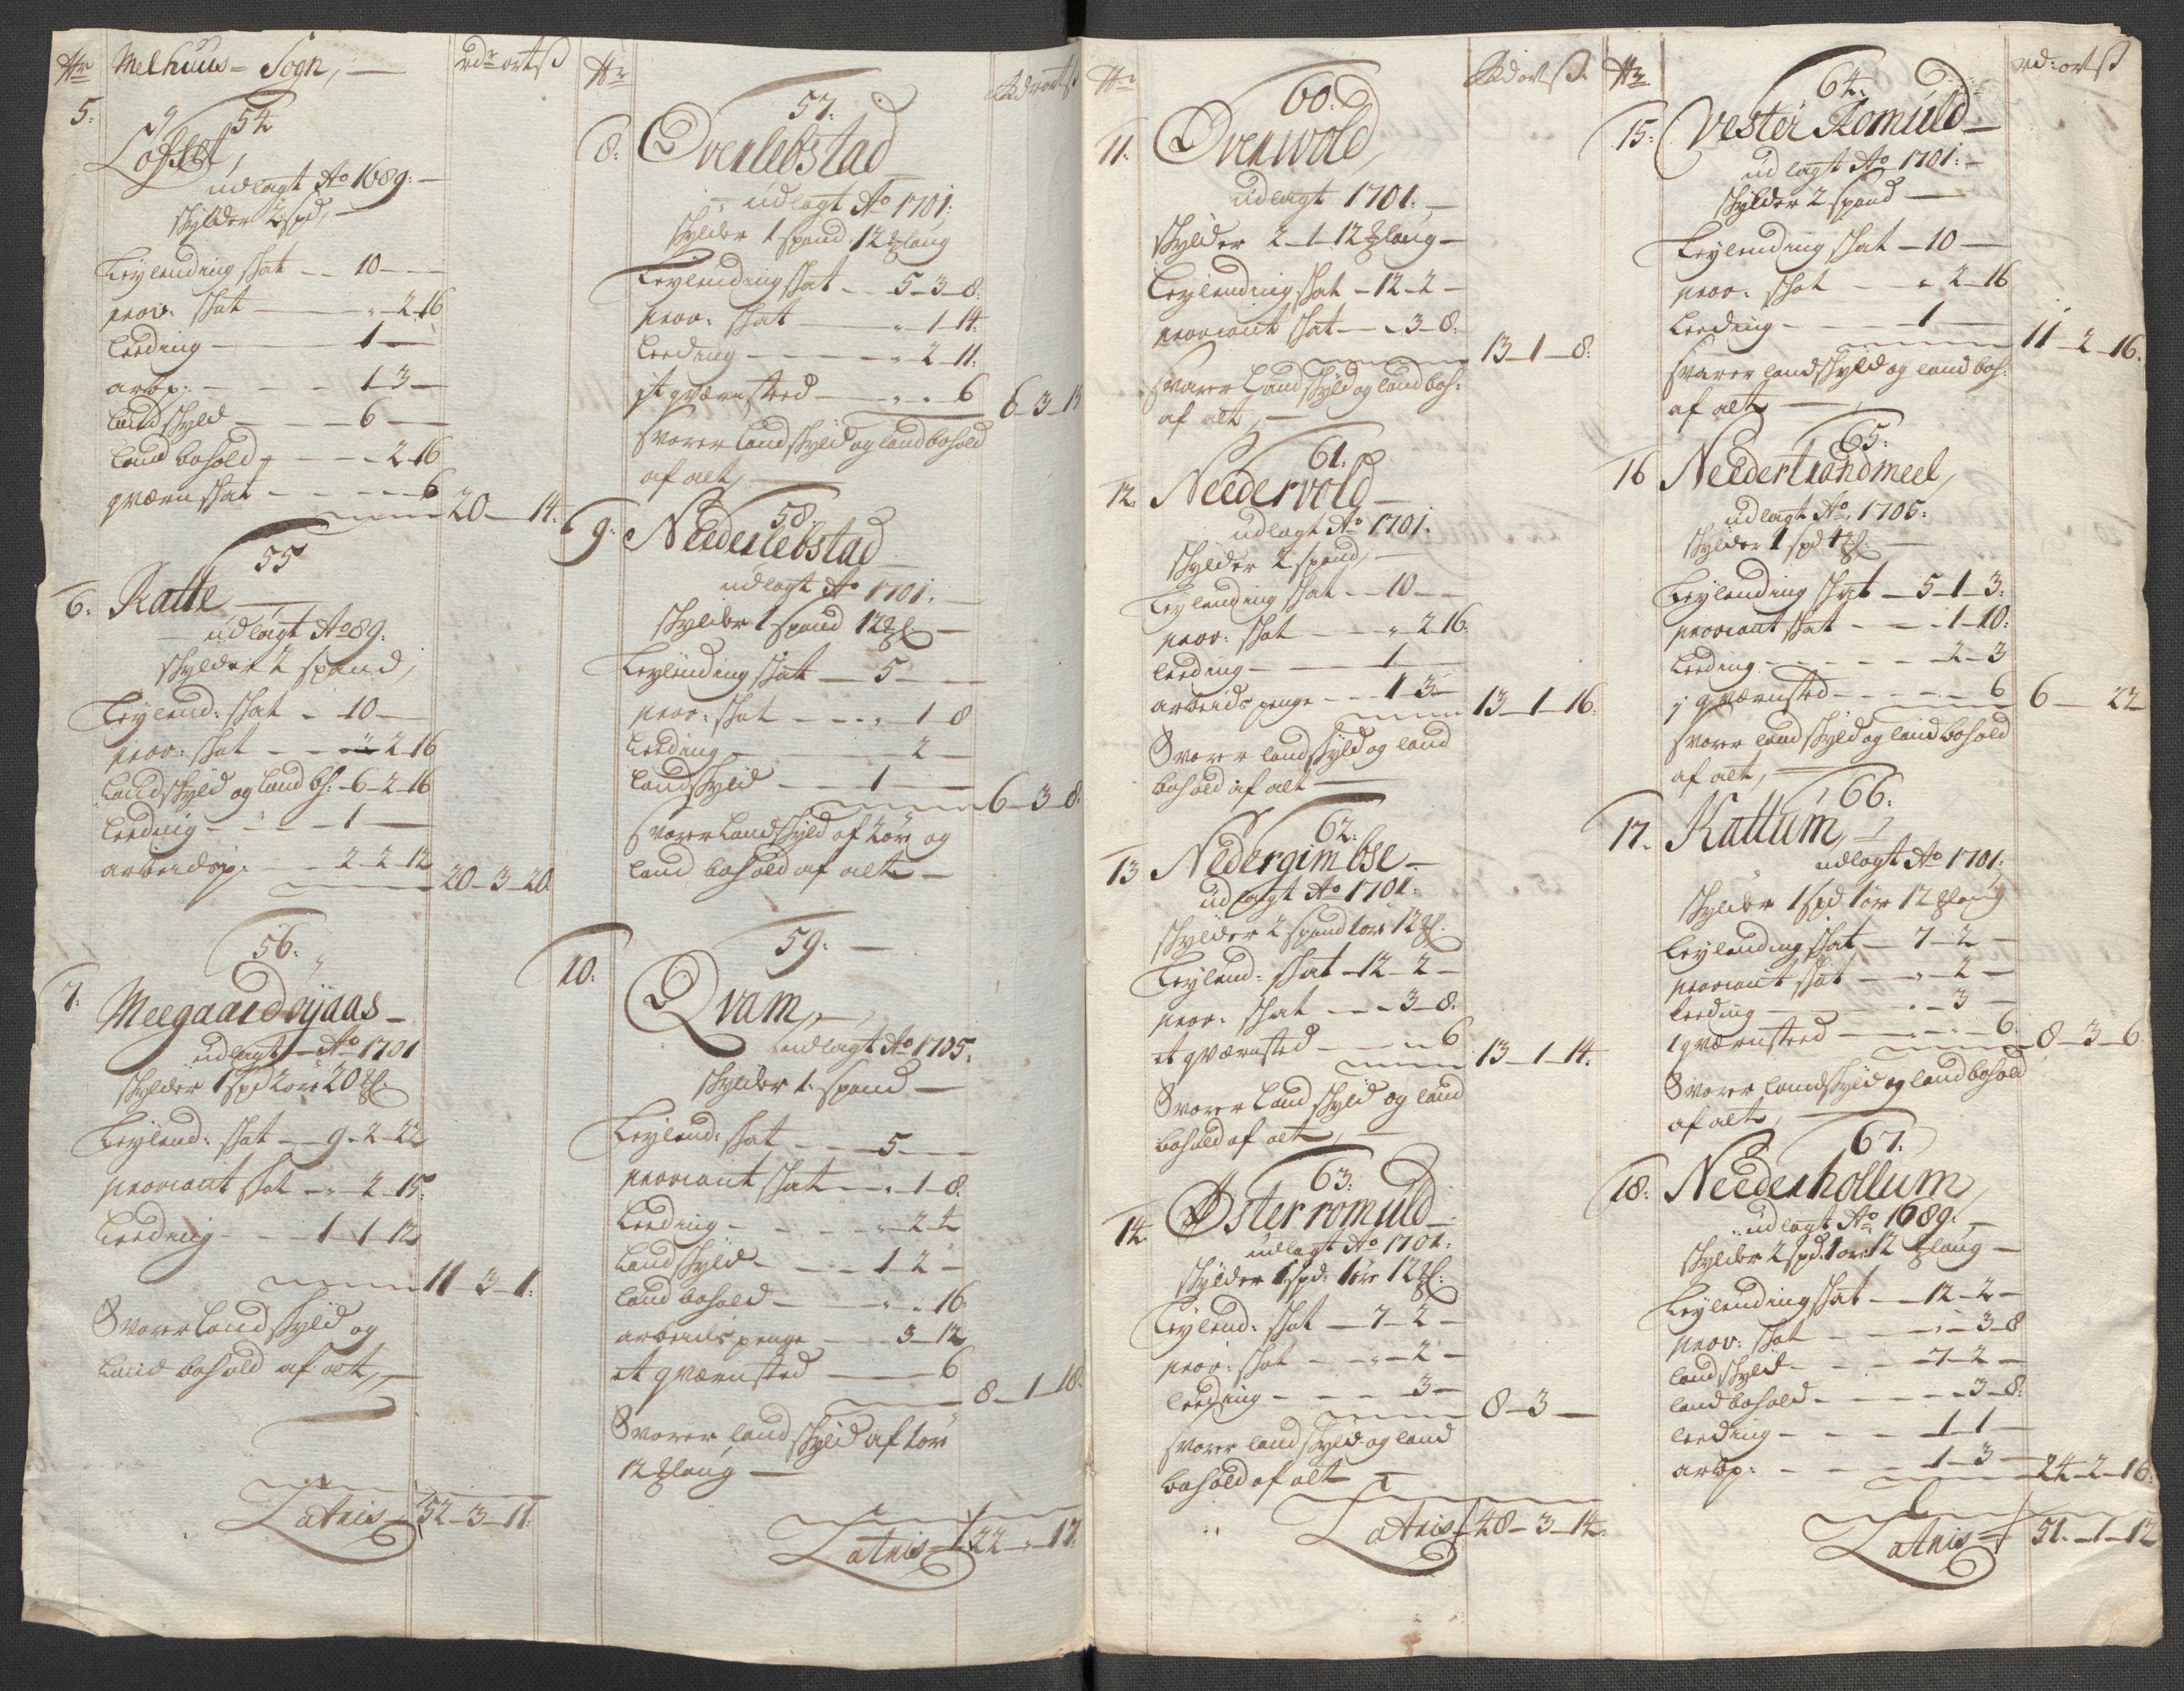 No Melhuus Sogn, rdr ort ß
5. 54
Loffset,
udlagt Ao 1689:
skylder 2 spd,
Leylending skat 10
prov: skat 2 16
Leeding 1
arbp: 1 3
Landskyld 6
Land bohold 2 16
qværnskat 6
20 14:
55
6. Katte
udlagt Ao 89:
skylder 2 spand,
Leylend: skat 10
prov: skat 2 16
Landskyld og Land bh: 6 2 16
Leeding 1
arbeidsp: 2 2 12
20 3 20
56.
7. Meegaardsÿaas
udlagt Ao 1701
skylder 1 spd 2 ore 20 ℔l.
Leylend: skat 9 2 22
proviant skat 2 15:
Leeding 1 1 12
11 3 1:
Svarer Landskyld og
Land bohold af alt,
Latris 52 3 11:
No Rdr ort ß
57:
8: Overlebstad
udlagt Ao 1701:
skylder 1 spand 12 ℔ laug
Leylending skat 5 3 8:
prov: skat 1 14:
Leeding 2 11:
it qværnsted 6
6 3 15
svarer Landskyld og Landbohold
af alt,
58.
9: Neederlebstad
udlagt Ao 1701:
skylder 1 spand 12 ℔l.
Leylending skat 5
prov: skat 1 8
Leeding 2
Landskyld 1
6 3 8:
svarer Landskyld af 2 ör og
Land bohold af alt
59:
10: Qvam,
udlagt Ao 1705:
skylder 1 spand
Leylend: skat 5
proviant skat 1 8:
Leeding 2 4
Landskyld 1 2
Land bohold 16:
arbeids penge 3 12
et qværnsted 6
8 1 18:
Svarer Landskyld af 1 ör
12 ℔ laug
Latris 22 17:
No Rd ort ß
60:
11: Overwold,
udlagt 1701:
skylder 2 1 12 ℔ laug
Leylending skat 12 2
proviant skat 3 8:
13 1 8:
svarer Landskyld og landboh:
af alt,
61:
12. Needervold
udlagt Ao 1701:
skylder 2 spand,
Leylending skat 10
prov: skat 2 16:
Leeding 1
arbeids penge 1 3
13 1 16:
Svarer landskyld og land
bohold af alt
62:
13 Nedergimbse
udlagt Ao 1701:
skylder 2 spand 1 ore 12 ℔l.
Leylend: skat 12 2
prov: skat 3 8:
et qværnsted 6
13 1 14:
Svarer Landskyld og land
bohold af alt,
63:
14 Øster romuld
udlagt Ao 1701:
skylder 1 spd: 1 øre 12 ℔l.
Leylend: skat 7 2
prov: skat 2
Leeding 3
8 3
svarer landskyld og land
bohold af alt
Latris 48 3 14:
No rd: ort ß
64:
15: Vester Romuld
udlagt Ao 1701:
skylder 2 spand
Leylending skat 10
prov: skat 2 16
Leeding 1
11 2 16:
svarer landskyld og landboh:
af alt
65:
16 Needertrandmeel,
udlagt Ao 1705:
skylder 1 spd 4 ℔l:
Leylending skat 5 1 3:
proviant skat 1 10:
Leeding 2 3
j qværnsted 6
6 22
svarer landskyld og landbohold
af alt,
66:
17. Kattum,
udlagt Ao 1701:
skylder 1 spd 1 ore 12 ℔ laug
Leylending skat 7 2
proviant skat 2
Leeding 3
1 qværnsteed 6:
8 3 6:
Svarer landskyld og landbohold
af alt,
67:
18: Neederhollum,
udlagt Ao 1689:
skylder 2 spd 1 ore 12 ℔ laug
Leylending skat 12 2
prov: skat 3 8
landskyld 7 2
landbohold 3 8:
Leeding 1 1
arbp: 1 3
24 2 16:
Latris 51 1 12